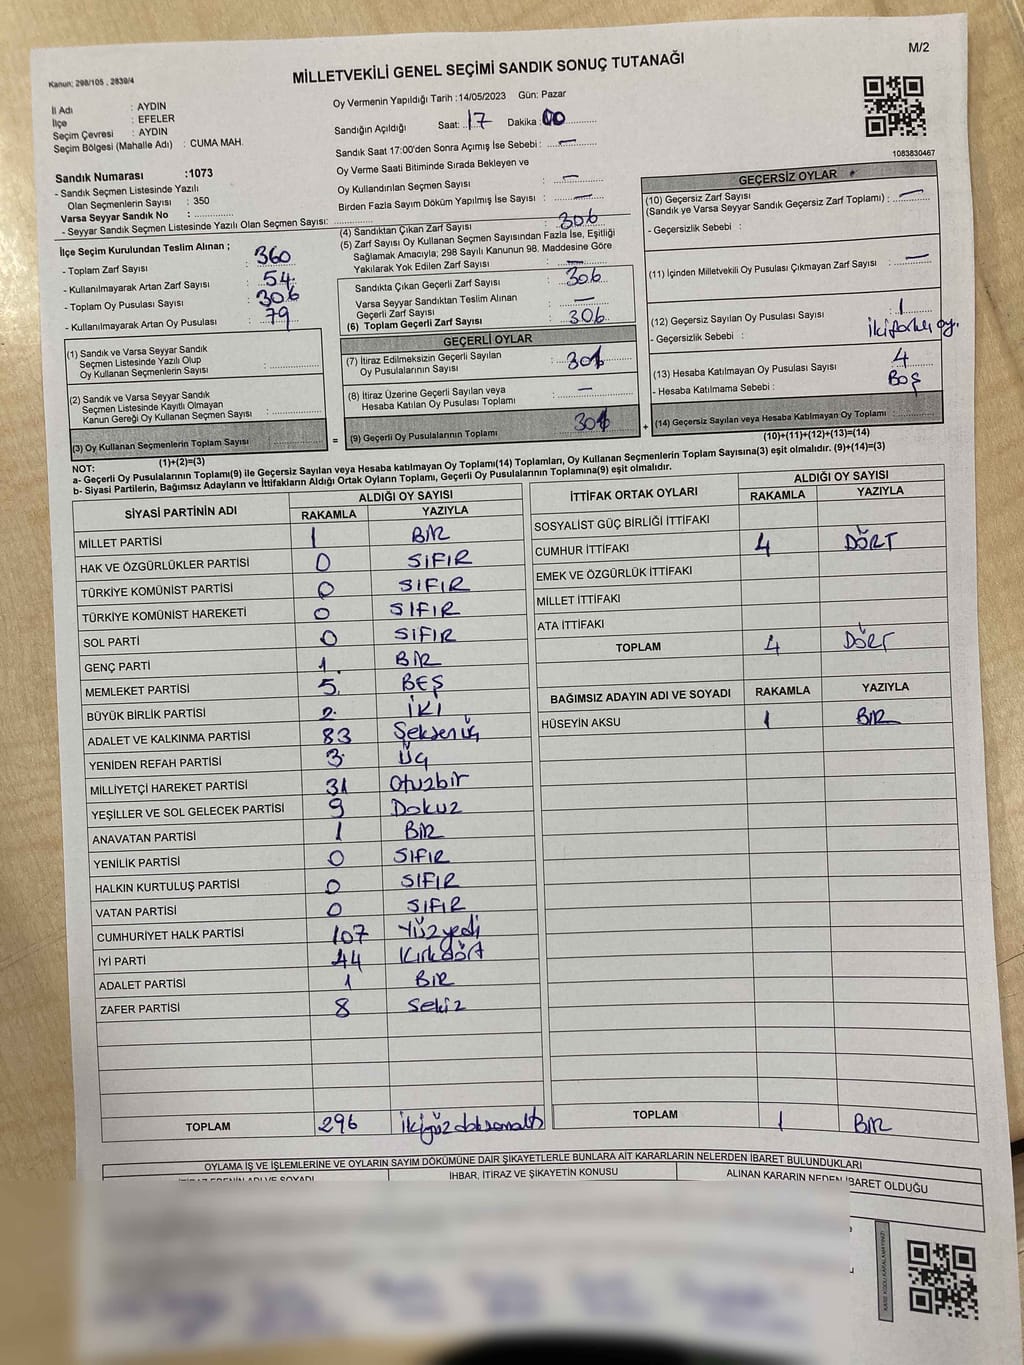 M/2
Kanun: 298/105 , 2839/4
MİLLETVEKİLİ GENEL SEÇİMİ SANDIK SONUÇ TUTANAĞI
İl Adı : AYDIN
İlçe : EFELER
Seçim Çevresi : AYDIN
Seçim Bölgesi (Mahalle Adı) : CUMA MAH.
Sandık Numarası :1073
- Sandık Seçmen Listesinde Yazılı
Olan Seçmenlerin Sayısı : 350
Varsa Seyyar Sandık No :
- Seyyar Sandık Seçmen Listesinde Yazılı Olan Seçmen Sayısı:
Oy Vermenin Yapıldığı Tarih :14/05/2023 Gün: Pazar
Sandığın Açıldığı Saat: 17 Dakika : 00
Sandık Saat 17:00'den Sonra Açımış İse Sebebi : —
Oy Verme Saati Bitiminde Sırada Bekleyen ve
Oy Kullandırılan Seçmen Sayısı : —
Birden Fazla Sayım Döküm Yapılmış İse Sayısı : —
1083830467
İlçe Seçim Kurulundan Teslim Alınan ;
- Toplam Zarf Sayısı : 360
- Kullanılmayarak Artan Zarf Sayısı : 54
- Toplam Oy Pusulası Sayısı : 306
- Kullanılmayarak Artan Oy Pusulası : 79
(1) Sandık ve Varsa Seyyar Sandık
Seçmen Listesinde Yazılı Olup
Oy Kullanan Seçmenlerin Sayısı :
(2) Sandık ve Varsa Seyyar Sandık
Seçmen Listesinde Kayıtlı Olmayan
Kanun Gereği Oy Kullanan Seçmen Sayısı :
(3) Oy Kullanan Seçmenlerin Toplam Sayısı
(1)+(2)=(3)
(4) Sandıktan Çıkan Zarf Sayısı : 306
(5) Zarf Sayısı Oy Kullanan Seçmen Sayısından Fazla İse, Eşitliği
Sağlamak Amacıyla; 298 Sayılı Kanunun 98. Maddesine Göre
Yakılarak Yok Edilen Zarf Sayısı : —
Sandıkta Çıkan Geçerli Zarf Sayısı : 306
Varsa Seyyar Sandıktan Teslim Alınan
Geçerli Zarf Sayısı : —
(6) Toplam Geçerli Zarf Sayısı : 306
GEÇERLİ OYLAR
(7) İtiraz Edilmeksizin Geçerli Sayılan
Oy Pusulalarının Sayısı : 301
(8) İtiraz Üzerine Geçerli Sayılan veya
Hesaba Katılan Oy Pusulası Toplamı : —
= (9) Geçerli Oy Pusulalarının Toplamı 301
GEÇERSİZ OYLAR
(10) Geçersiz Zarf Sayısı
(Sandık ve Varsa Seyyar Sandık Geçersiz Zarf Toplamı) : —
- Geçersizlik Sebebi :
(11) İçinden Milletvekili Oy Pusulası Çıkmayan Zarf Sayısı : —
(12) Geçersiz Sayılan Oy Pusulası Sayısı : 1
- Geçersizlik Sebebi : oy.
(13) Hesaba Katılmayan Oy Pusulası Sayısı : 4
- Hesaba Katılmama Sebebi : BOŞ
+ (14) Geçersiz Sayılan veya Hesaba Katılmayan Oy Toplamı
(10)+(11)+(12)+(13)=(14)
NOT:
a- Geçerli Oy Pusulalarının Toplamı(9) ile Geçersiz Sayılan veya Hesaba katılmayan Oy Toplamı(14) Toplamları, Oy Kullanan Seçmenlerin Toplam Sayısına(3) eşit olmalıdır. (9)+(14)=(3)
b- Siyasi Partilerin, Bağımsız Adayların ve İttifakların Aldığı Ortak Oyların Toplamı, Geçerli Oy Pusulalarının Toplamına(9) eşit olmalıdır.
SİYASİ PARTİNİN ADI ALDIĞI OY SAYISI
RAKAMLA YAZIYLA
MİLLET PARTİSİ 1 BİR
HAK VE ÖZGÜRLÜKLER PARTİSİ 0 SIFIR
TÜRKİYE KOMÜNİST PARTİSİ 0 SIFIR
TÜRKİYE KOMÜNİST HAREKETİ 0 SIFIR
SOL PARTİ 0 SIFIR
GENÇ PARTİ 1 BİR
MEMLEKET PARTİSİ 5 BEŞ
BÜYÜK BİRLİK PARTİSİ 2 İKİ
ADALET VE KALKINMA PARTİSİ 83 Şeksenüç
YENİDEN REFAH PARTİSİ 3 ÜÇ
MİLLİYETÇİ HAREKET PARTİSİ 31 Otuzbir
YEŞİLLER VE SOL GELECEK PARTİSİ 9 Dokuz
ANAVATAN PARTİSİ 1 BİR
YENİLİK PARTİSİ 0 SIFIR
HALKIN KURTULUŞ PARTİSİ 0 SIFIR
VATAN PARTİSİ 0 SIFIR
CUMHURİYET HALK PARTİSİ 107 Yüzyedi
İYİ PARTİ 44 Kırkdört
ADALET PARTİSİ 1 BİR
ZAFER PARTİSİ 8 Sekiz
TOPLAM 296 İkiyüzdoksanaltı
İTTİFAK ORTAK OYLARI ALDIĞI OY SAYISI
RAKAMLA YAZIYLA
SOSYALİST GÜÇ BİRLİĞİ İTTİFAKI
CUMHUR İTTİFAKI 4 DÖRT
EMEK VE ÖZGÜRLÜK İTTİFAKI
MİLLET İTTİFAKI
ATA İTTİFAKI
TOPLAM 4 DÖRT
BAĞIMSIZ ADAYIN ADI VE SOYADI RAKAMLA YAZIYLA
HÜSEYİN AKSU 1 BİR
TOPLAM 1 BİR
OYLAMA İŞ VE İŞLEMLERİNE VE OYLARIN SAYIM DÖKÜMÜNE DAİR ŞİKAYETLERLE BUNLARA AİT KARARLARIN NELERDEN İBARET BULUNDUKLARI
İTİRAZ EDENİN ADI VE SOYADI İHBAR, İTİRAZ VE ŞİKAYETİN KONUSU ALINAN KARARIN NEDEN İBARET OLDUĞU